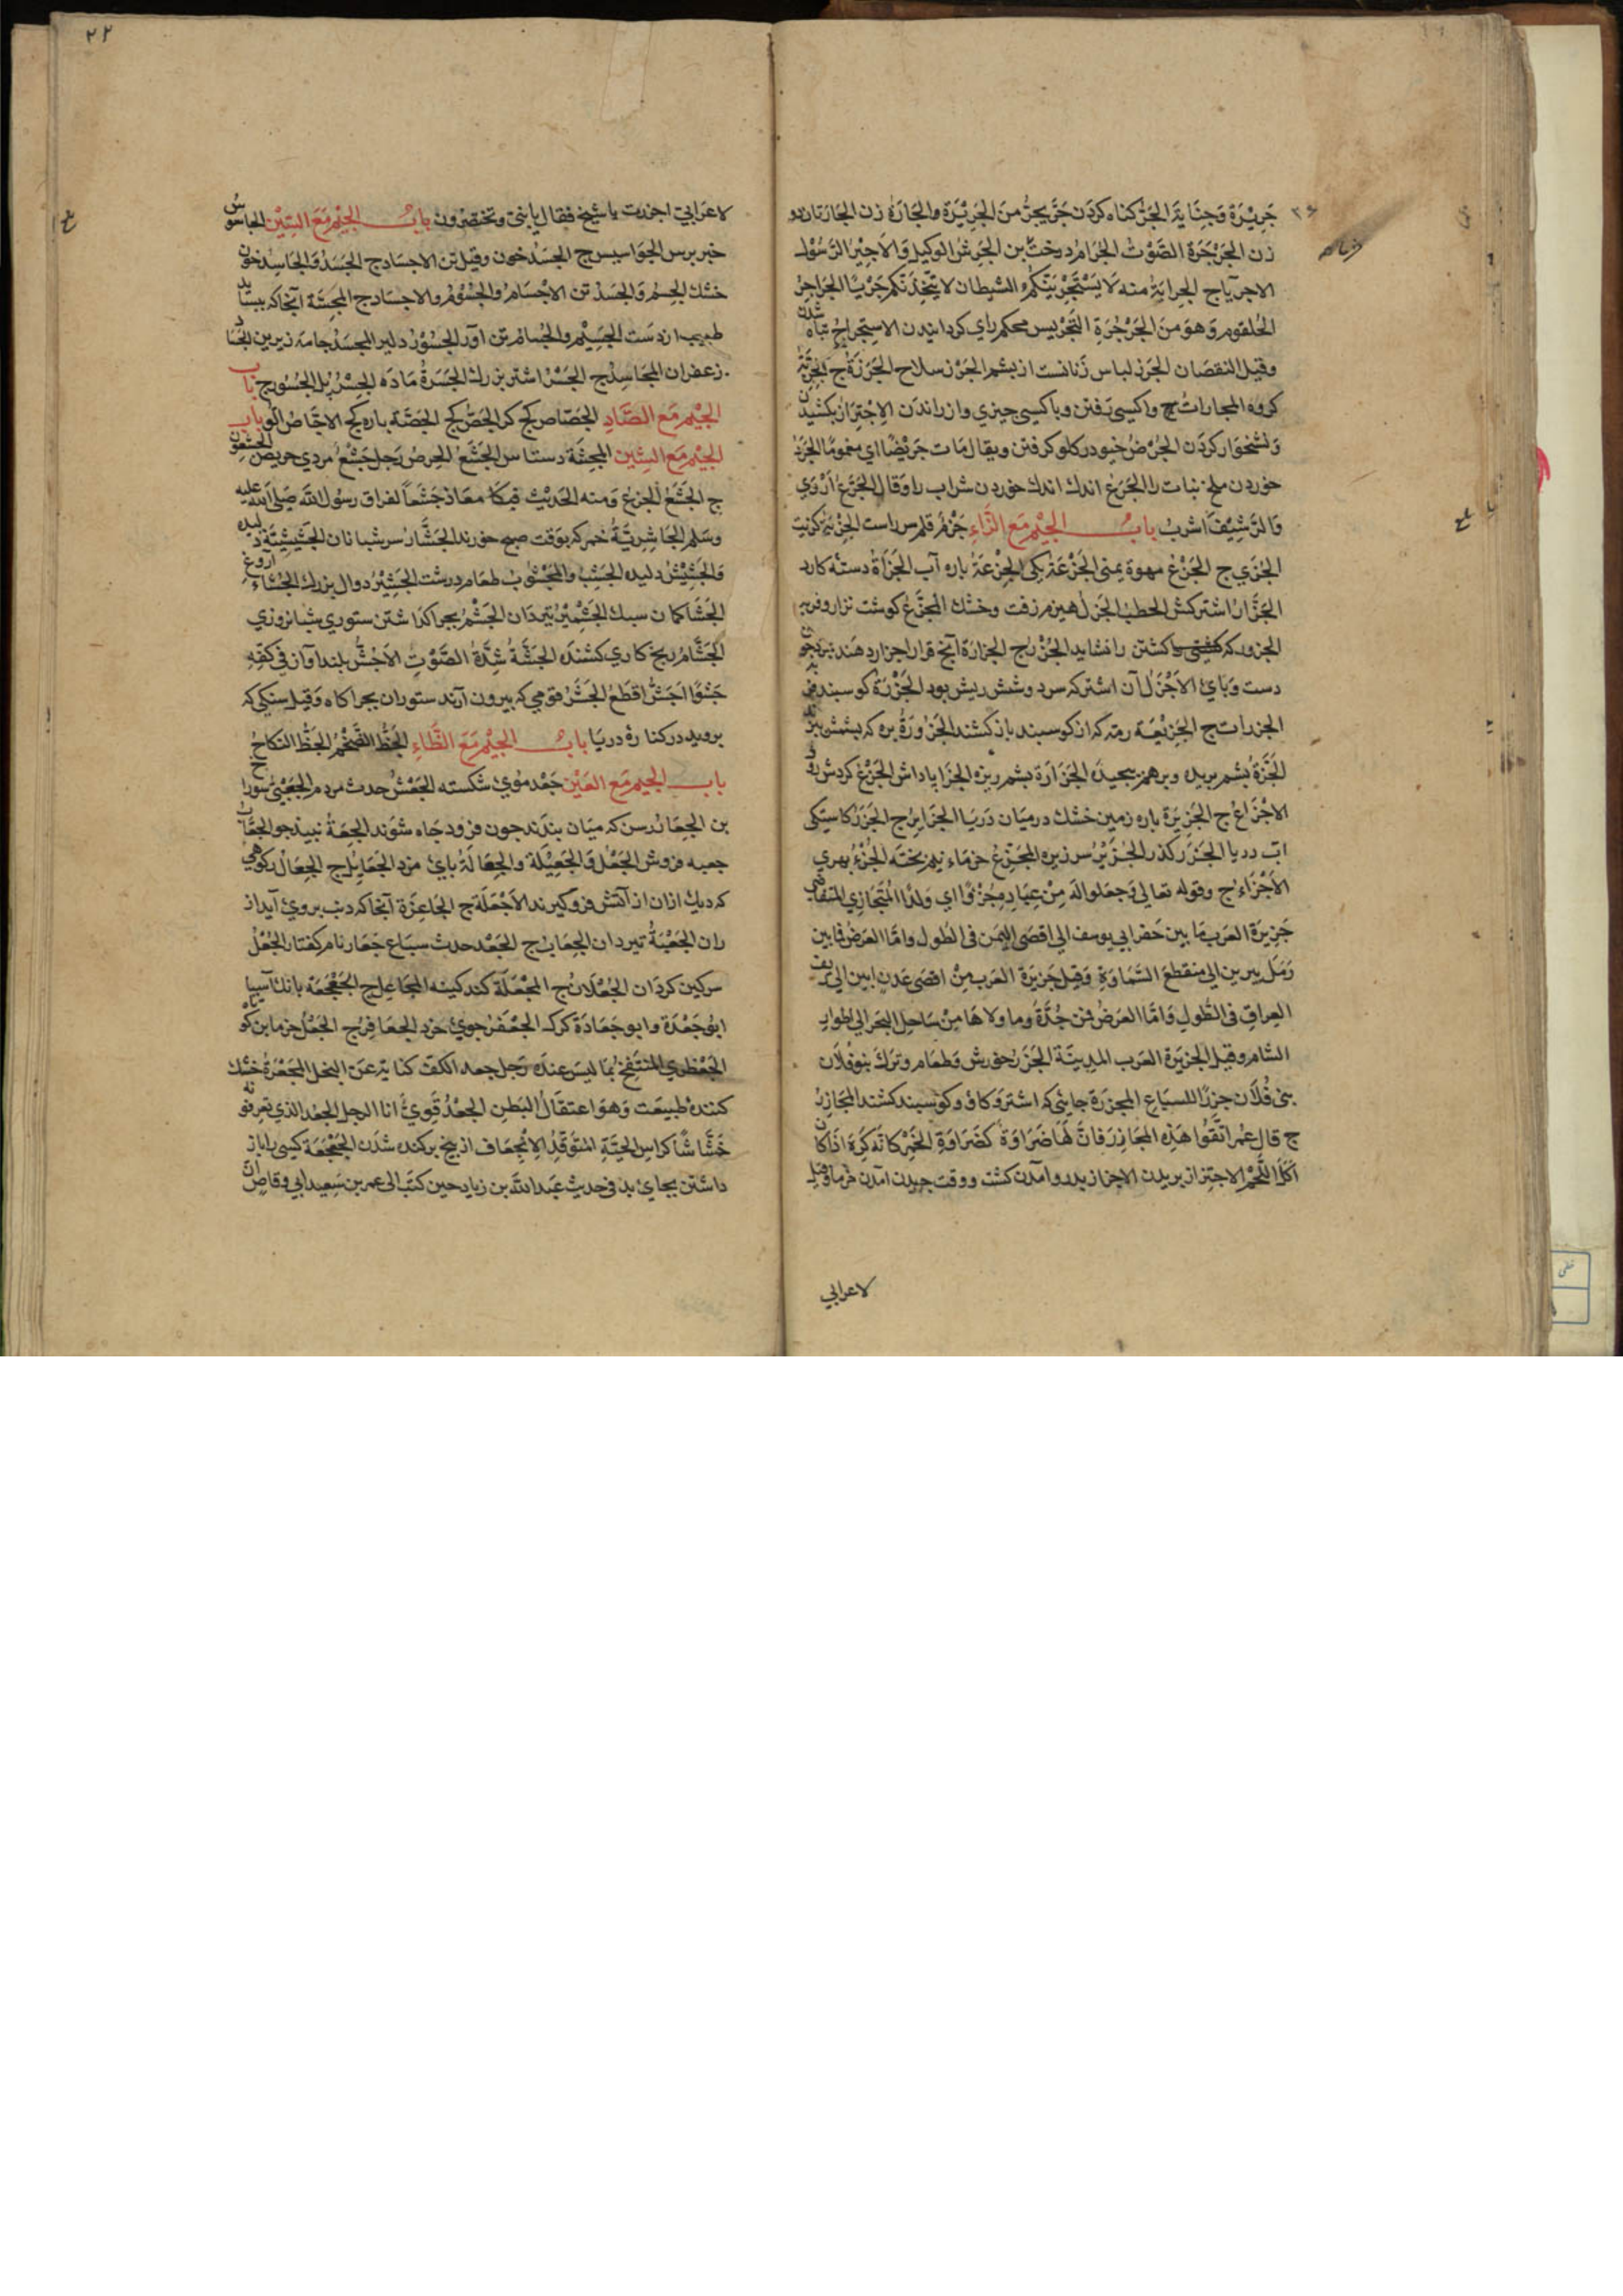 جَرِيْرَة وَجِنَايَة الجَرّ كناه كردن جَرّ يَجُرّ مِنَ الجَرِيْرَة والجَارَة زن الجَارَتان دو
زن الجَرْجَرَة الصَّوْت الجُرَام درخت بن الجَرِش الوكيل وَالاَجِيْر الرَّسُوْل
الاجرياج الجراية منه لَا يَسْتَجْرِيَنَّكُم الشيطان لا يتّخِذَنَّكم جَرْيًا الجَراجِر
الحُلقوم وَهوَ مِنَ الجَرْجَرَة التَّجْرِيس محكم راي كردانيدن الاستِجراح تباه شدن
وقيل النقصَان الجَرز لباس زنانست از پشم الجُرْز سلاح الجَرَزَة ج الجِرْقَة
كروه المجارات ج واكسى رفتن وباكسى چيزي وا زراندن الاِجْتِرَار بكشيدن
وَنشخوار كردَن الجُرْض خيو در كلو كرفتن ويقال مَات جَرِيْضًا اي مغمومًا الجَرْد
خوردن ملخ نبات را الجَرْع اندك اندك خوردن شراب را وَقال الجَرْع اَرْوَي
وَالرَّشِيْفُ اشرب بابُ الجِيْم مَعَ الزَّاءِ جَزْم قلم سر راست الجِزْيَة كزيت
الجِزَي ج الجَزْع مهرة يمنى الجَزْعَة يكى الجِزْعَة باره آب الجَزَاة دسته كارد
الجَزَّار اشتركش الحطب الجَزْل هيزم زفت وخشك المجَزَّع كوشت نزار وفربه
الجزور كه كشتن را نشايد الجُزُر ج الجزارة آنچ قرار اجزار دهند
دست وَپاي الاَجْزَل آن اشتر كه سر دوشش ريش بود الجَزْرَة كوسبند
الجزرات ج الجَزِيْعَة رمه كه از كوسبند باز كشند الجَزُوزَة بره كه پشمش
الجَزَّة پشم بريده وبرهم پيچيده الجَزَازَة پشم ريزه الجَزا پاداش الجَزْع كردش رود
الاَجْزَاع ج الجَزِيْرَة باره زمين خشك درميان دَريَا الجَزايِر ج الجَزْر كاستكى
آب دريا الجَزْر كذر الجُزَيْر سر زيره المجَزِّع خرماء نيم پخته الجُزْءُ بهري
الاَجْزَاء ج وقوله تعالى وَجعلوا لَه مِنْ عِبَادِه جُزْءًا اي وَلدًا المُتَجَازِي المتقاضي
جَزِيرَة العَرب مَا بين حَفر ابي يوسف الي اقصَى اليَمَن في الطول وامّا العَرض فما بين
رَمْل يبرين الى منقطع السَّمَاوَةِ وَقيل جَزِيرَة العَرب مِنْ اقصَى عَدن ابين الي ريف
العِراقِ في الطُّول وَامَّا العَرضُ فمن جُدَّة وما والاهَا مِنْ سَاحِل البَحر الى اطوار
الشّام وقيل الجَزِيرَة العَرب المدينَة الجَزَر خورش وَطعَام وتركَ بَنو فُلَان
بنى فُلَان جزرًا للسبَاع المجزرَة جايئى كه اشتر وَكاو وكوسبند كشند المجَازِر
ج قال عمر اتَّقوا هَذِه المجَازِر فانَّ لَهَا ضَرَاوَة كَضَرَاوَةِ الخَمْر كانَّه كَرِه اذَا كان
اَكَلَ اللَّحْم الاجتِزاز بريدن الاجزاز بدرو آمدن كشت ووقت چيدن آمدن خرما وقيل
لاعرابي
۲۲
لاعرَابيّ اجززت يا شيخ فقال يا بُنى وتختضرون بابُ الجِيْم مَعَ السِّيْن الجاسوس
خبر برس الجوَاسيس ج الجَسَد خون وقيل تن الاجسَاد ج الجَسَد وَالجَاسِد خون
خشك الجِسم وَالجسَد تن الاَجْسَام والجُسُوْم والاجسَاد ج المجسَّة آنجا كه ببسايد
طبيب از دَست الجَسِيْم والجُسَام تن آوَر الجَسُوْر دلير المجسَد جامه زيرين
زعفران المجَاسِد ج الجَسْر اشتر بزرك الجَسرَة مادَه الجِسْر پل الجُسُور ج باب
الجِيْم مَعَ الصَّادِ الجَصّاص كچ كر الجَصّ كچ الجَصَّة باره كچ الاجّاص آلو باب
الجِيْم مَعَ الشِّين المجشّة دستاس الجَشَع الحِرص رَجل جَشِع مردي حريص الجشعون
ج الجَشَع الجزع وَمنه الحَديث فبكا معَاذ جَشَعًا لفراق رسول الله صَلى الله عليه
وسَلم الجَاشِرِيَّة خمر كه بوَقت صبح خورند الجَشَّار سر شبانان الجَشِيشَة دليده
وَالجَشِيْش دليده الجَشِبُ والمَجْشُوب طعَام درشت الجَشِيْر دوال بزرك الجُشَاء آروغ
الجَشَأ كمان سبك الجَشِيْر تيردَان الجَشْر بچرا كذاشتن ستوري شبانروزي
الجَشَّام رنج كاري كشنده الجَشَّة شِدَّة الصَّوْتِ الاَجَشّ بلند آواز في كفِّهِ
جَشْوًا اَجَشّ اقطع الجَشَر قومي كه بيرون آرند ستوران بچراكاه وَقيل سنكى كه
برويد در كنارهٔ دريَا بابُ الجِيْم مَعَ الظَّاءِ الجَظّ الضَّخْم الجَظّ النكَاح
باب الجيم مَعَ العَيْن جَعْد مُوي شكسته الجَعْس حدث مردم الجَعْبَىْ سوراخ
بن الجِعَار رسن كه ميَان بندَند چون فرود چَاه شوَند الجِعَة نبيذ جو الجعَّاب
جعبه فروش الجَعْل وَالجَعِيْلَة والجِعَالَة پاي مزد الجَعَايل ج الجِعَال ركوهي
كه ديك ازان از آتش فرو كيرند الاَجْعَلَة ج الجَاعِرَة آنجا كه دنب بروي آيد از
ران الجَعْبَة تيردان الجِعَاب ج الجَعْر حدث سبَاع جَعَار نام كفتار الجُعَل
سركين كردَان الجُعْلَان ج المَجْعَلَة كند كينه المجَاعِل ج الجَعْجَعَة بانك آسيا
ابُوجَعْدَة وابو جَعَادَة كرك الجَعْفَر جوي خرد الجعَافِر ج الجَعْل خرما بن كوتاه
الجَعْظري المنتفِخ بمَا ليسَ عندَه رَجل جعد الكف كنايَة عَن البخل المَجْعَرَة خشك
كننده طبيعَت وَهوَ اعتقالُ البَطنِ الجَعْد قَوِيّ انا الرجل الجَعْد الذي تعرفونه
خَشَّاشًا كراسِ الحيَّةِ المتوَقّدِ الاِنجِعَاف از بيخ بركنده شدَن الجَعْجَعَة كسى را باز
داشتن بجاي بد في حديث عَبد الله بن زياد حين كتَب الى عمر بن سَعيد ابي وقاصٍ ان